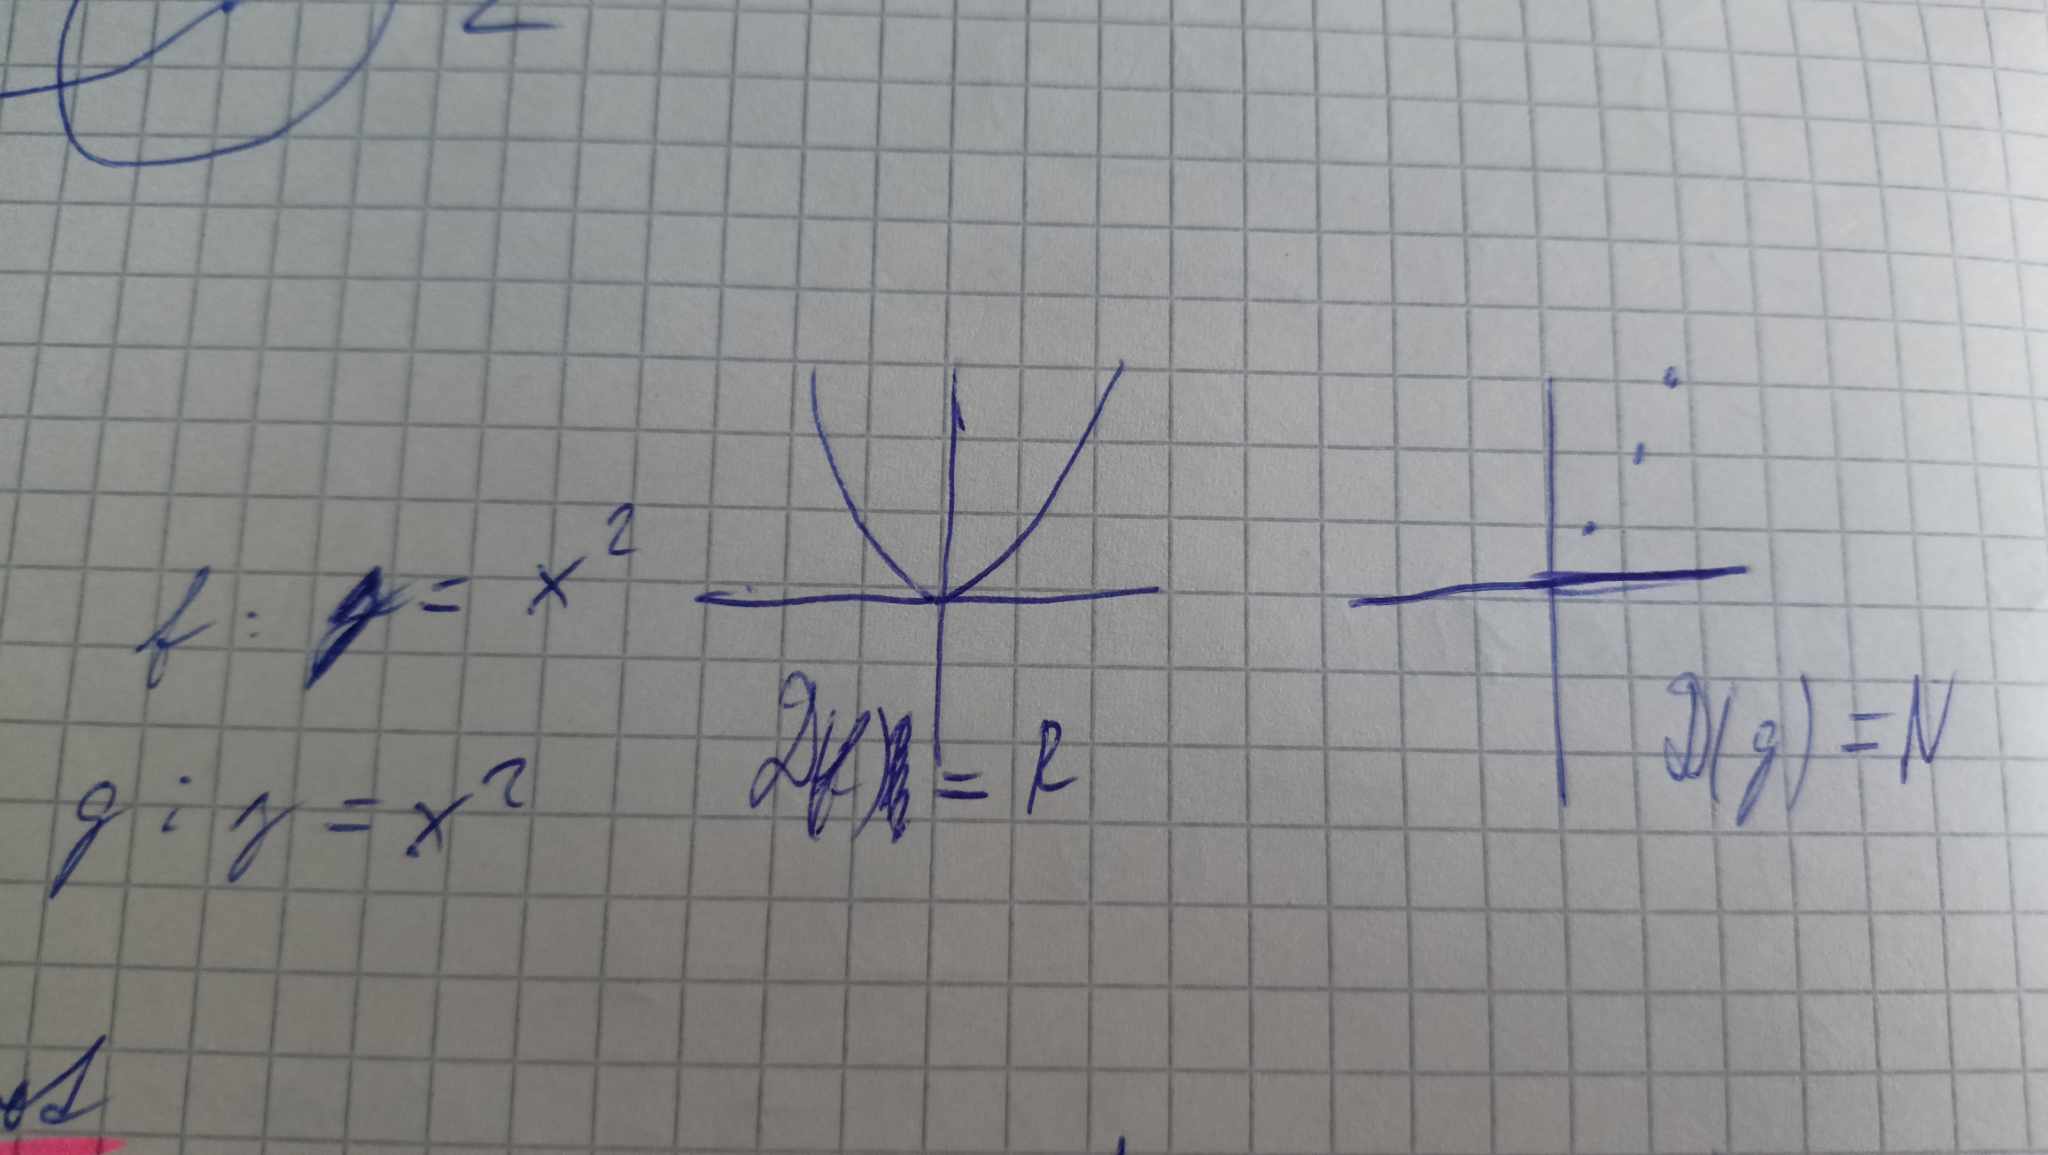 f: y = x²
g: y = x²
D(f) = R
D(g) = N